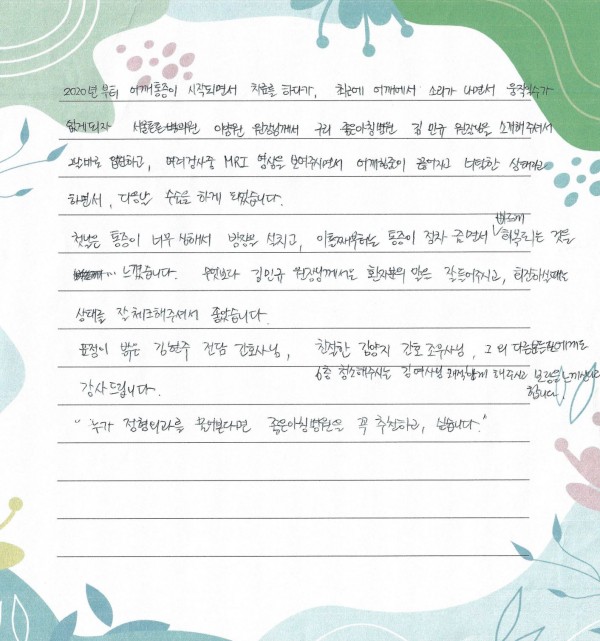 2020년부터 어깨통증이 시작되면서 치료를 하다가, 최근에 어깨에서 소리가 나면서 움직일수가
없게되자 서울튼튼병의원 이병원 원장님께서 구리 좋은아침병원 김민규 원장님을 소개해주셔서
곧바로 입원하고, 여러검사중 MRI 영상을 보여주시면서 어깨힘줄이 끊어지고 너덜한 상태라고
하면서, 다음날 수술을 하게 되었습니다.
첫날은 통증이 너무 심해서 밤잠을 설치고, 이튿째부터는 통증이 점차 줄면서 빠르게 회복되는 것을
느꼈습니다. 무엇보다 김민규 원장님께서는 환자분의 말은 잘들어주시고, 회진하실때는
상태를 잘 체크해주셔서 좋았습니다.
표정이 밝은 김현주 전담 간호사님, 친절한 김양지 간호조무사님, 그 외 다른분들에게도
6층 청소해주시는 김여사님 깨끗하게 해주시고
감사드립니다.
합니다.
"누가 정형외과를 물어본다면 좋은아침병원을 꼭 추천하고, 싶습니다."